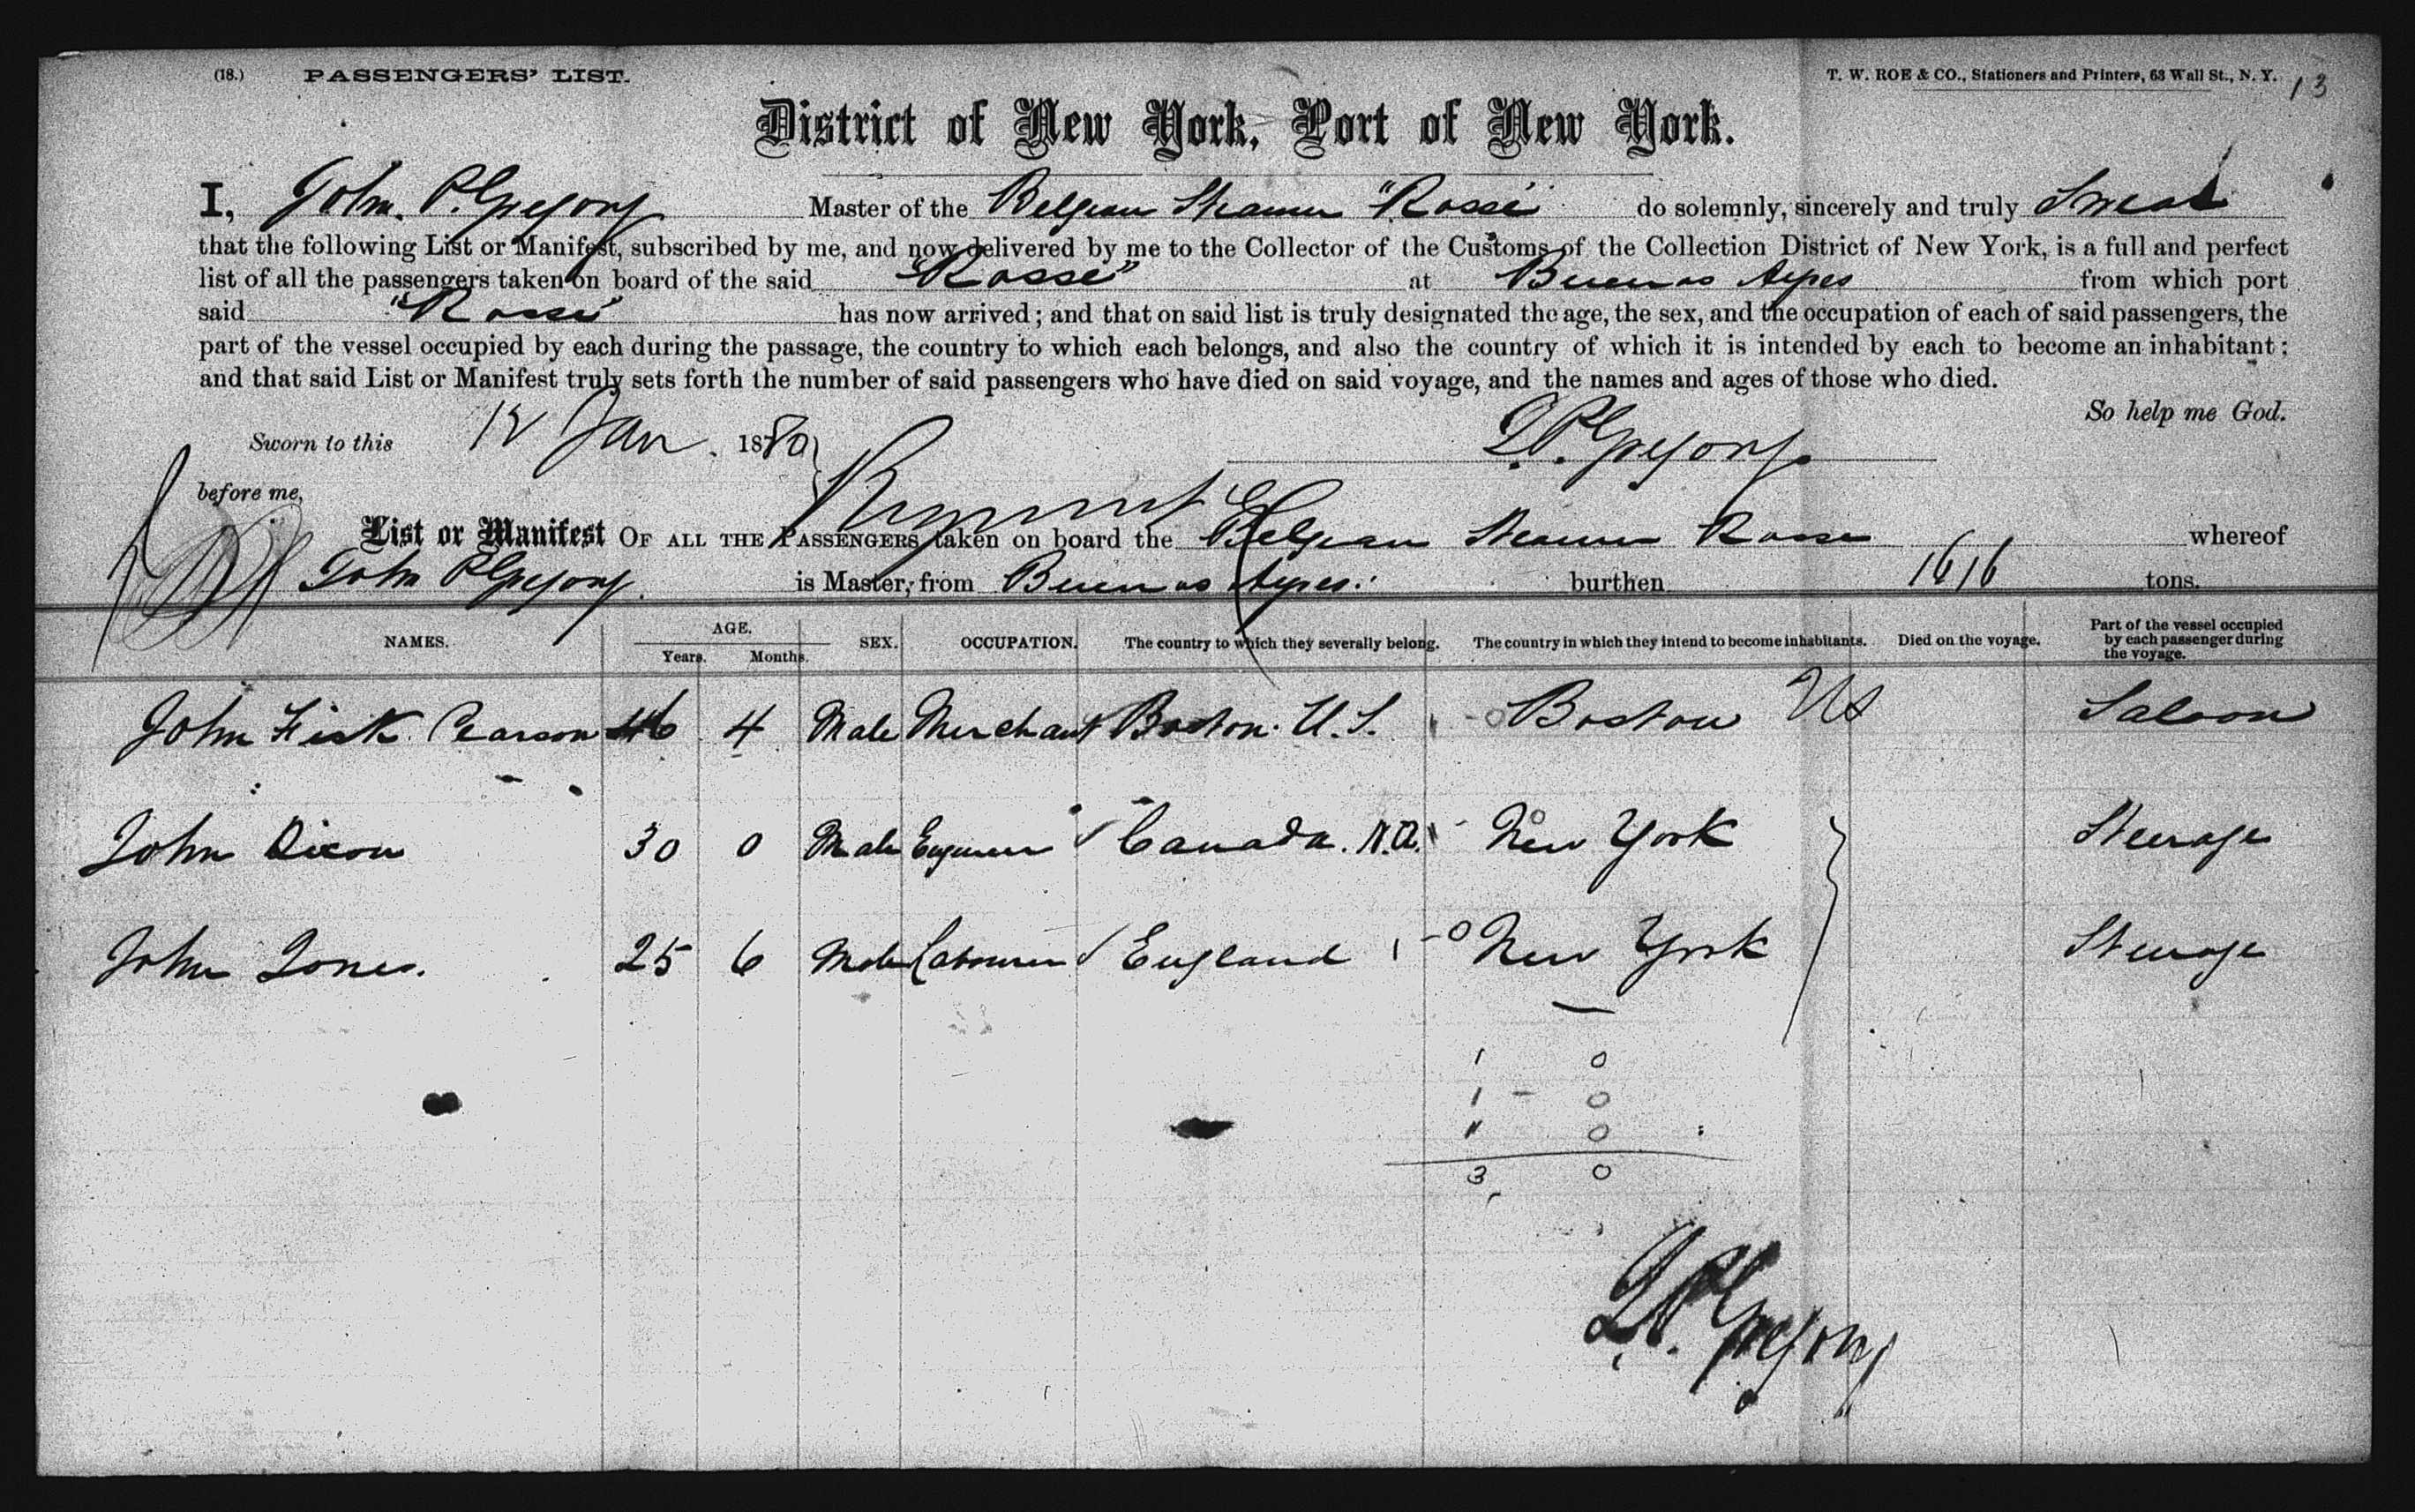 (18.) PASSENGERS' LIST. T. W. ROE & CO., Stationers and Printers, 63 Wall St., N. Y. 13
District of New York, Port of New York.
I, John. P. Gregory Master of the Belgian Steamer "Rosse" do solemnly, sincerely and truly Swear
that the following List or Manifest, subscribed by me, and now delivered by me to the Collector of the Customs of the Collection District of New York, is a full and perfect
list of all the passengers taken on board of the said "Rosse" at Buenos Ayres from which port
said "Rosse" has now arrived; and that on said list is truly designated the age, the sex, and the occupation of each of said passengers, the
part of the vessel occupied by each during the passage, the country to which each belongs, and also the country of which it is intended by each to become an inhabitant;
and that said List or Manifest truly sets forth the number of said passengers who have died on said voyage, and the names and ages of those who died.
So help me God.
Sworn to this 12 Jan. 1880 J.P. Gregory
before me,
List or Manifest OF ALL THE PASSENGERS taken on board the Belgian Steamer Rosse whereof
John P Gregory. is Master, from Buenos Ayres. burthen 1616 tons.
NAMES. AGE. Years. Months. SEX. OCCUPATION. The country to which they severally belong. The country in which they intend to become inhabitants. Died on the voyage. Part of the vessel occupied by each passenger during the voyage.
John Fisk Pearson 46 4 Male Merchant Boston. U.S. 1 - 0 Boston US Saloon
John Dixon 30 0 Male Engineer Canada. N.A. 1 - 0 New York Steerage
John Jones. 25 6 Male Labourer England 1 - 0 New York Steerage
1 0
1 - 0
1 0
3 0
J.P. Gregory